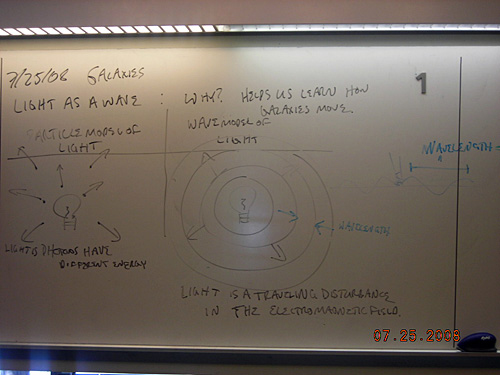 7/25/08 GALAXIES
LIGHT AS A WAVE : WHY? HELPS US LEARN HOW
GALAXIES MOVE.
PARTICLE MODEL OF
LIGHT
WAVE MODEL OF
LIGHT
LIGHT IS PHOTONS HAVE
DIFFERENT ENERGY
WAVELENGTH
WAVELENGTH =
LIGHT IS A TRAVELING DISTURBANCE
IN THE ELECTROMAGNETIC FIELD.
1
07.25.2008